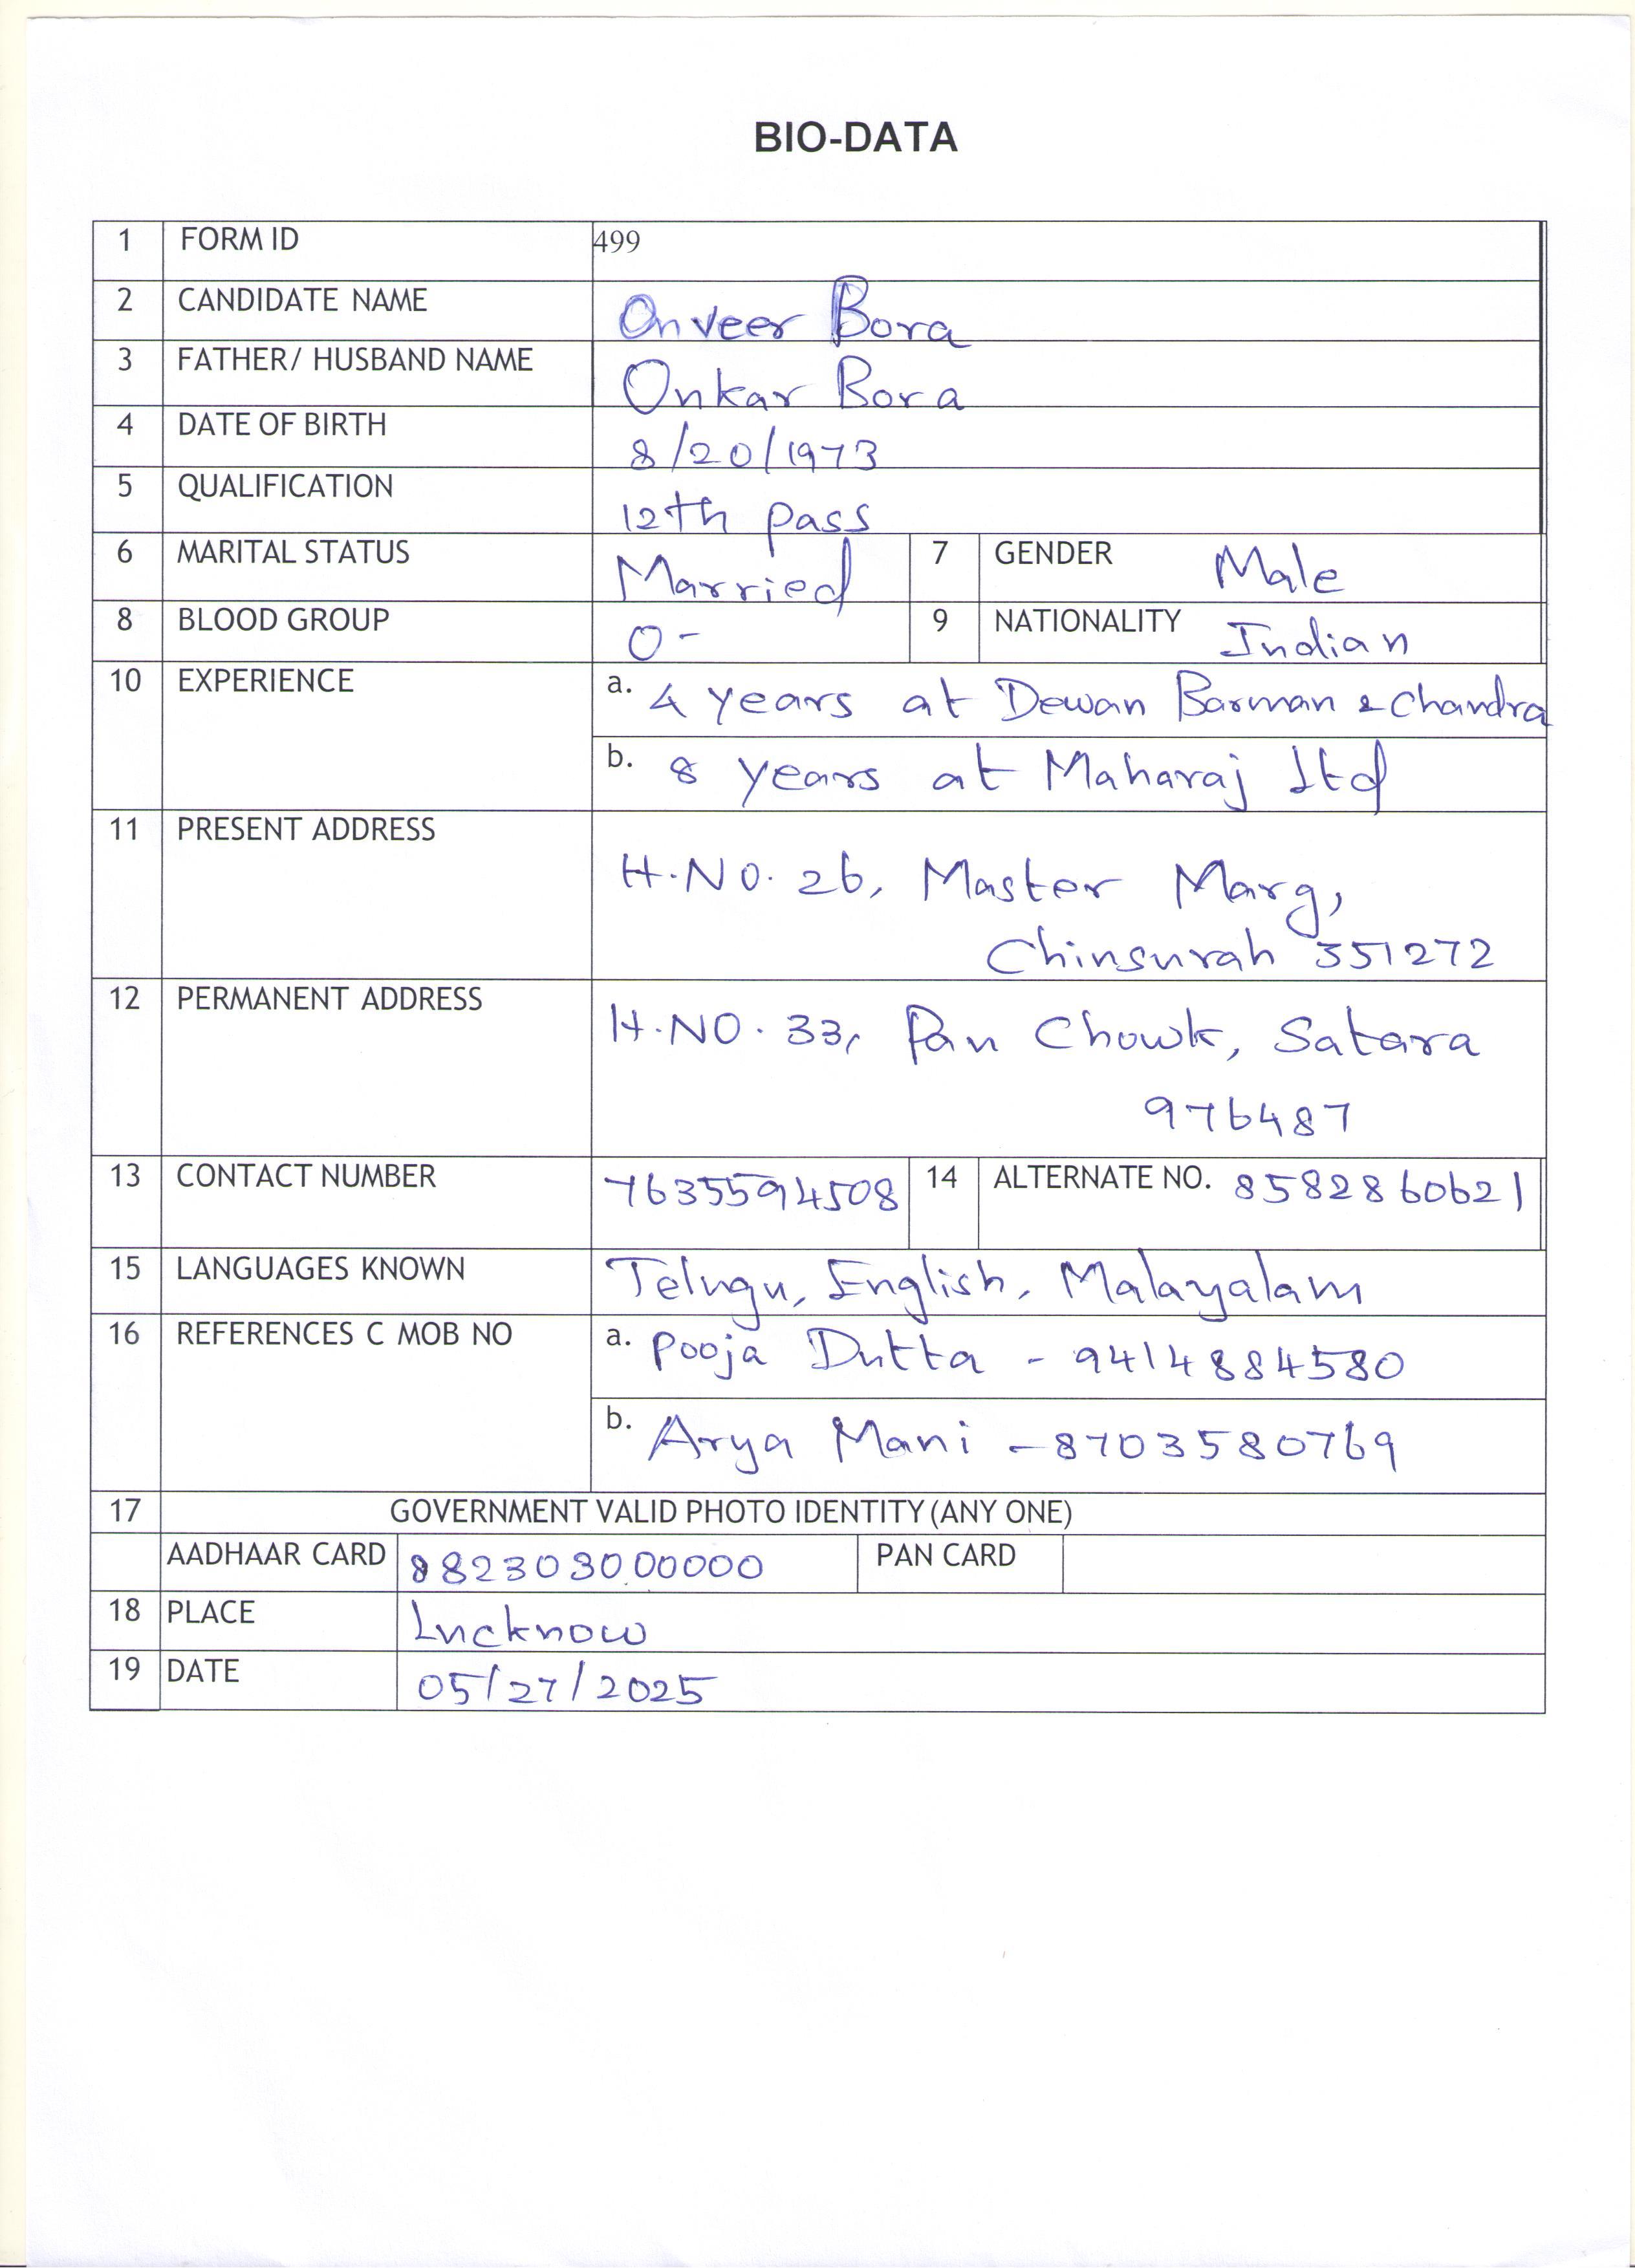 BIO-DATA
1 FORM ID 499
2 CANDIDATE NAME Onveer Bora
3 FATHER/ HUSBAND NAME Onkar Bora
4 DATE OF BIRTH 8/20/1973
5 QUALIFICATION 12th pass
6 MARITAL STATUS Married 7 GENDER Male
8 BLOOD GROUP O- 9 NATIONALITY Indian
10 EXPERIENCE a. 4 years at Dewan Barman & Chandra
b. 8 years at Maharaj Ltd
11 PRESENT ADDRESS
H.NO. 26, Master Marg,
Chinsurah 351272
12 PERMANENT ADDRESS H.NO. 33, Pan Chowk, Satara
976487
13 CONTACT NUMBER 7635594508 14 ALTERNATE NO. 8582860621
15 LANGUAGES KNOWN Telugu, English, Malayalam
16 REFERENCES C MOB NO a. Pooja Dutta - 9414884580
b. Arya Mani - 8703580769
17 GOVERNMENT VALID PHOTO IDENTITY (ANY ONE)
AADHAAR CARD 882303000000 PAN CARD
18 PLACE Lucknow
19 DATE 05/27/2025